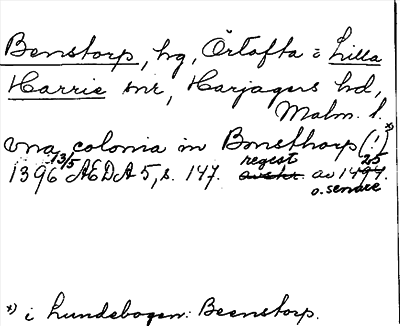 Benstorp, hg, Örtofta = Lilla
Harrie snr, Harjagers hd,
Malm. l.
vna colonia in Bonsthorp (!) *)
1396 13/5 AEDA 5, s. 147. regest av 1425
o. senare
*) i Lundebogen: Beenstorp.